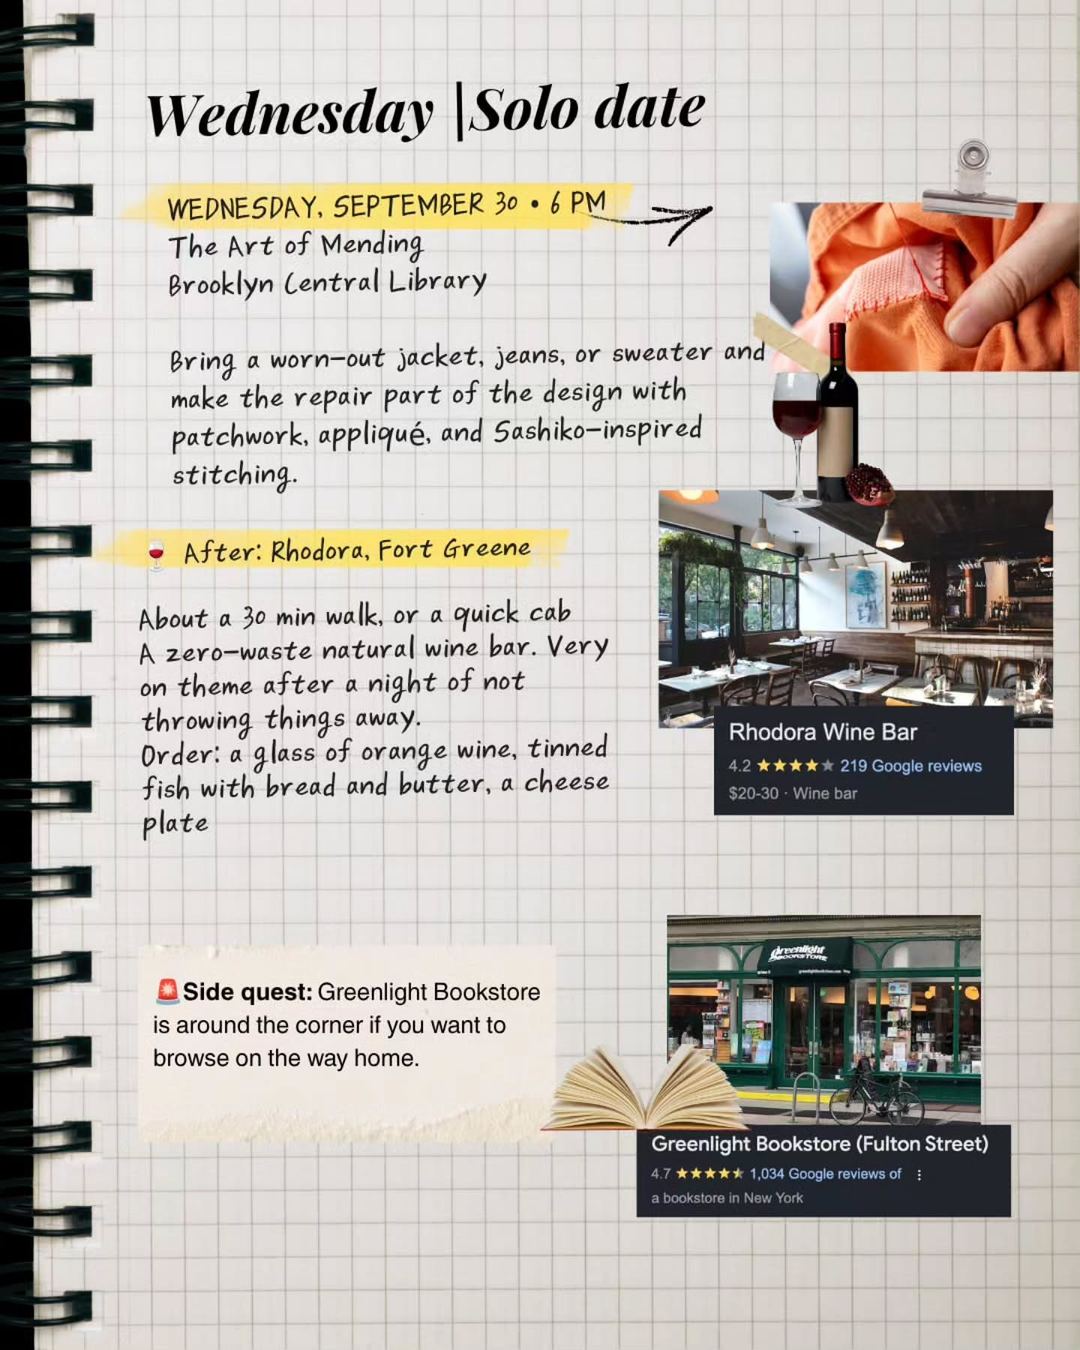 Wednesday |Solo date
WEDNESDAY, SEPTEMBER 30 • 6 PM
The Art of Mending
Brooklyn Central Library
Bring a worn-out jacket, jeans, or sweater and
make the repair part of the design with
patchwork, appliqué, and Sashiko-inspired
stitching.
🍷 After: Rhodora, Fort Greene
About a 30 min walk, or a quick cab
A zero-waste natural wine bar. Very
on theme after a night of not
throwing things away.
Order: a glass of orange wine, tinned
fish with bread and butter, a cheese
plate
Rhodora Wine Bar
4.2 ★★★★★ 219 Google reviews
$20-30 · Wine bar
🚨Side quest: Greenlight Bookstore
is around the corner if you want to
browse on the way home.
greenlight
BOOKSTORE
Greenlight Bookstore (Fulton Street)
4.7 ★★★★★ 1,034 Google reviews of
a bookstore in New York